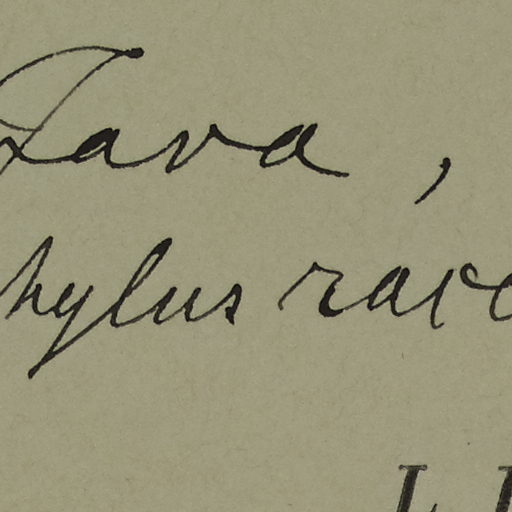 Java,
hylus race
L I